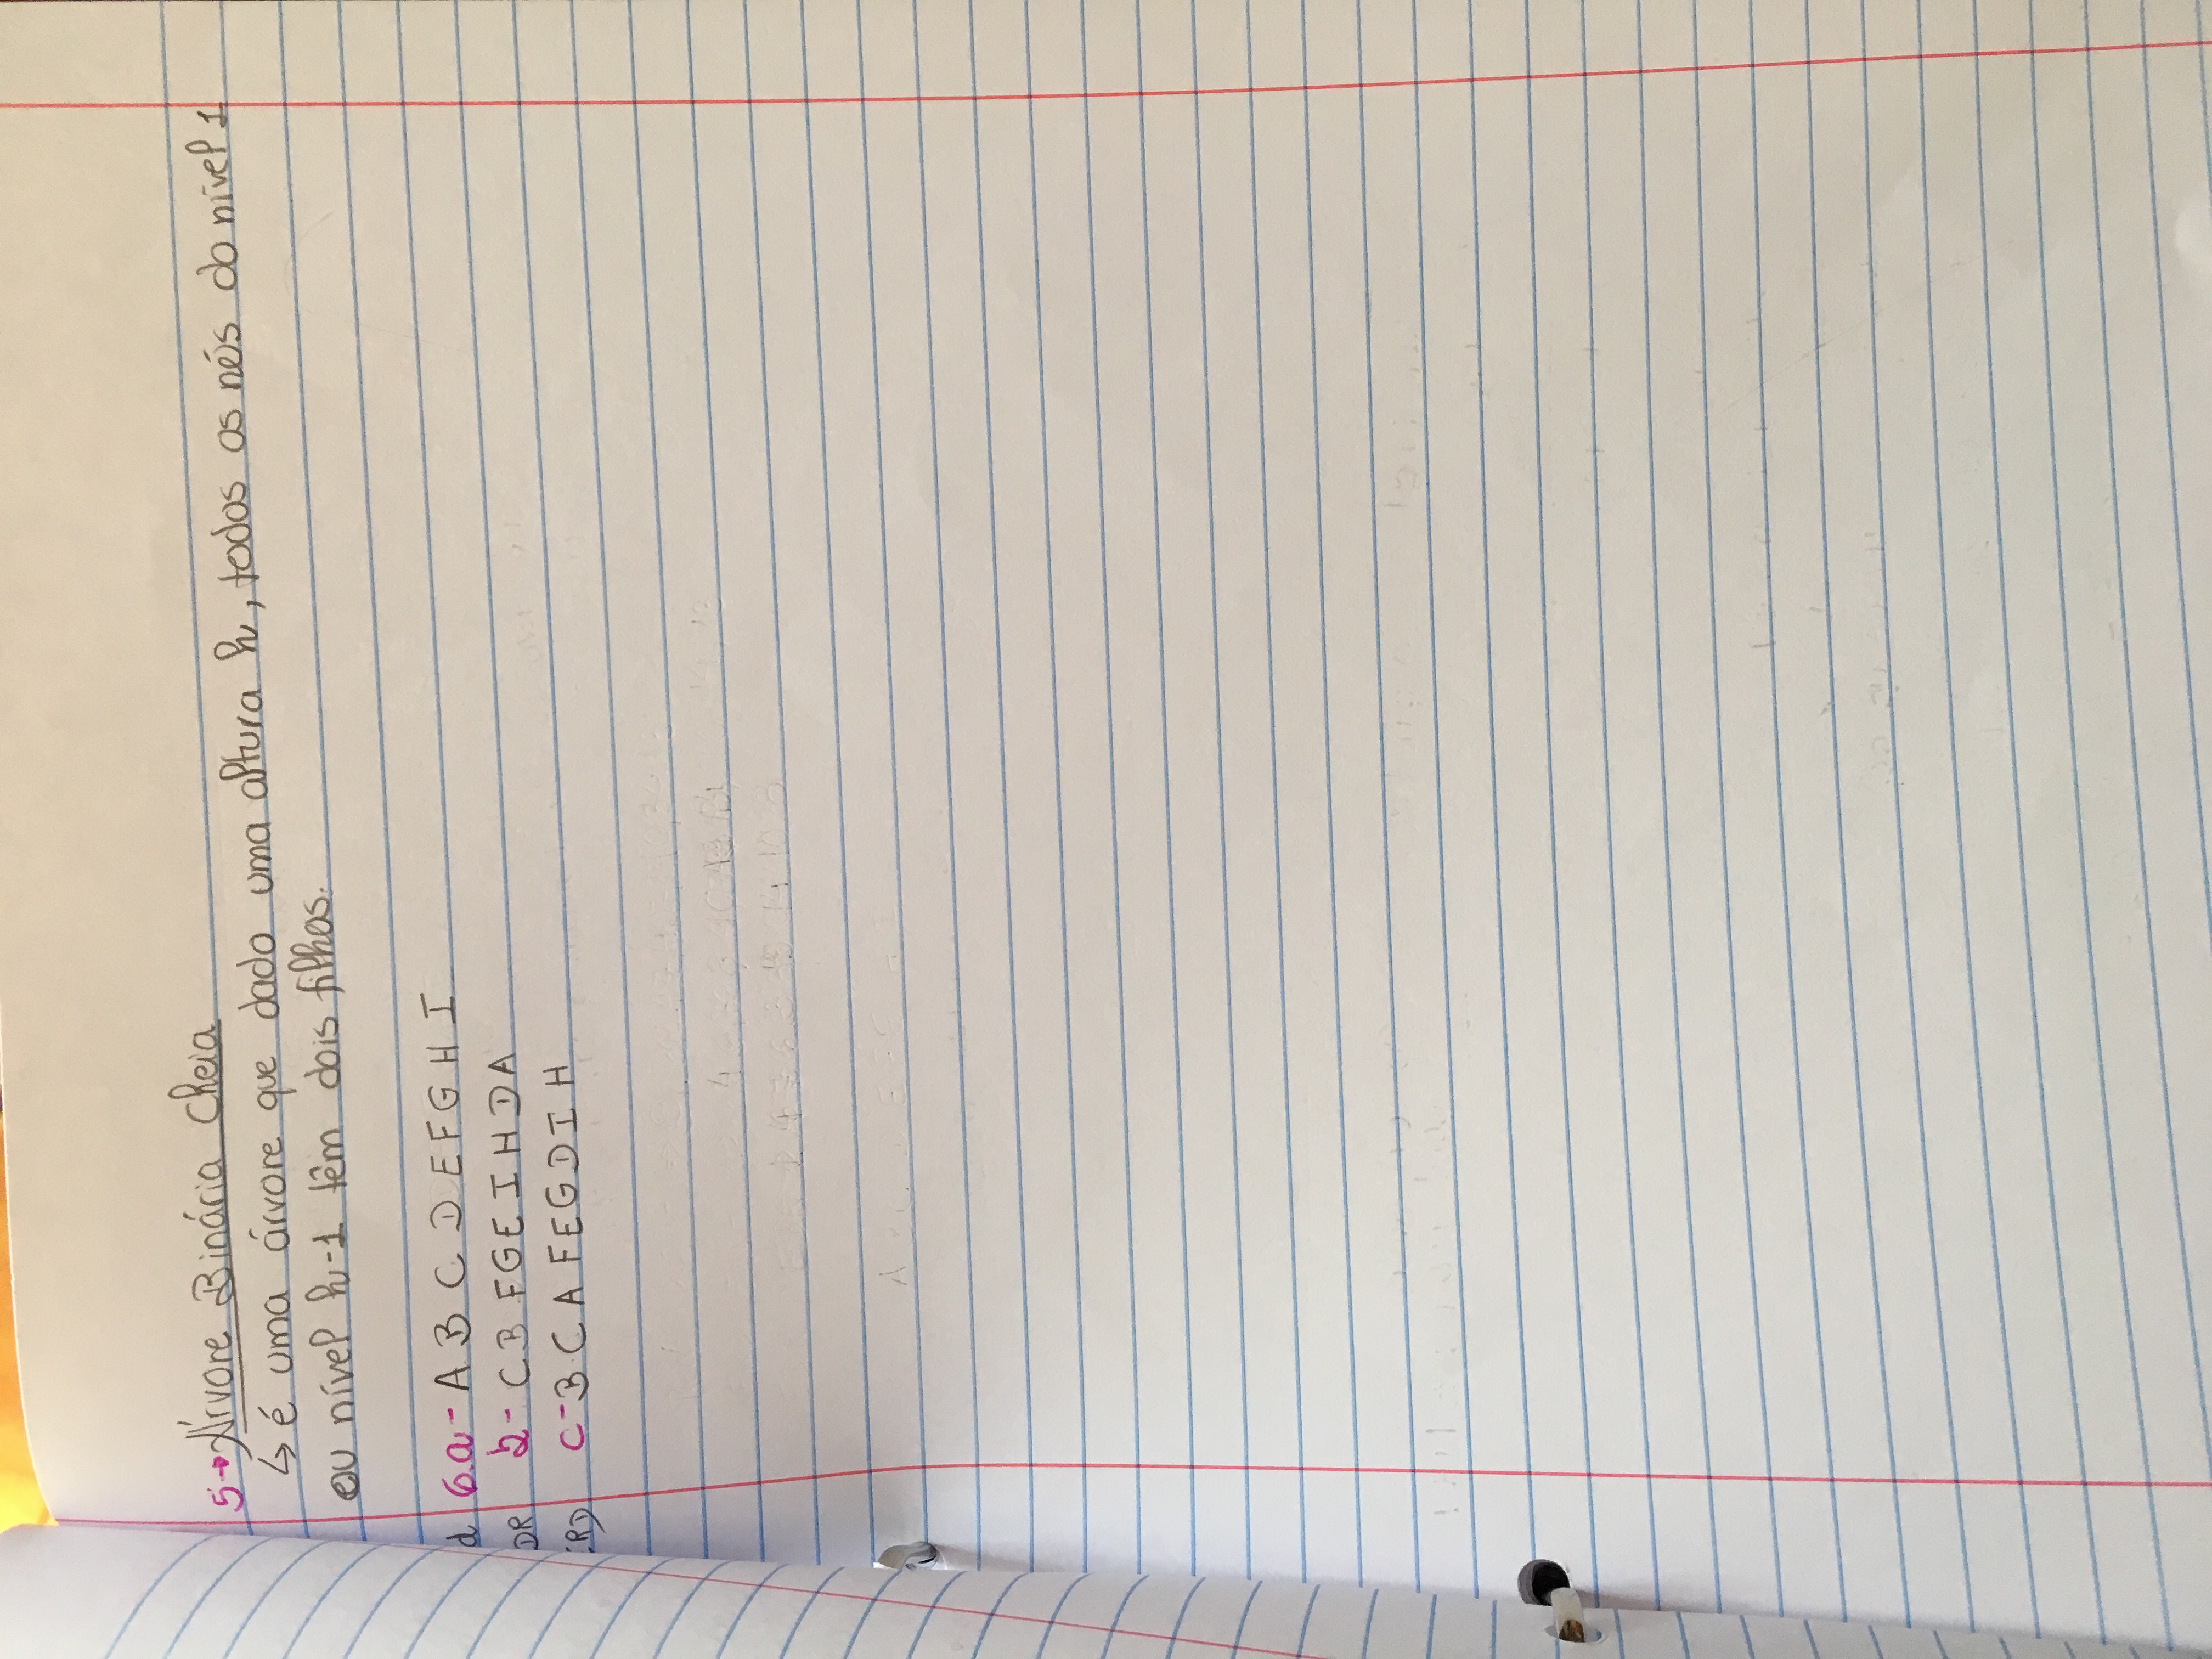 5→Árvore Binária Cheia
↳ é uma árvore que dado uma altura h, todos os nós do nível 1
ou nível h-1 têm dois filhos.
d 6.a- A B C D E F G H I
DR b- C B F G E I H D A
RD c- B C A F E G D I H